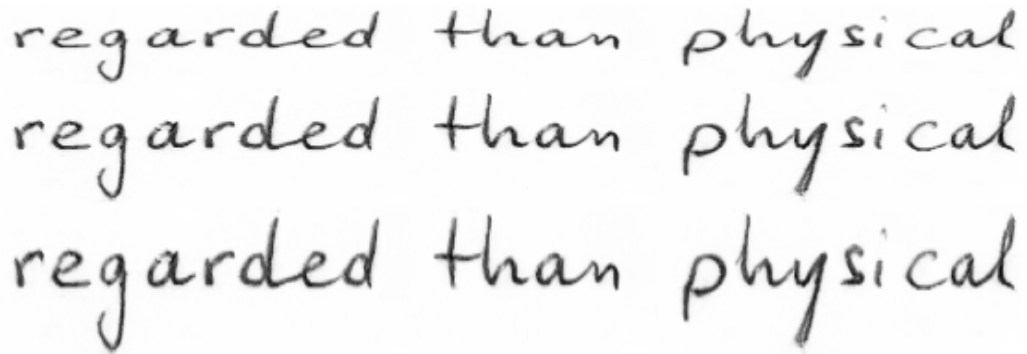 regarded than physical
regarded than physical
regarded than physical